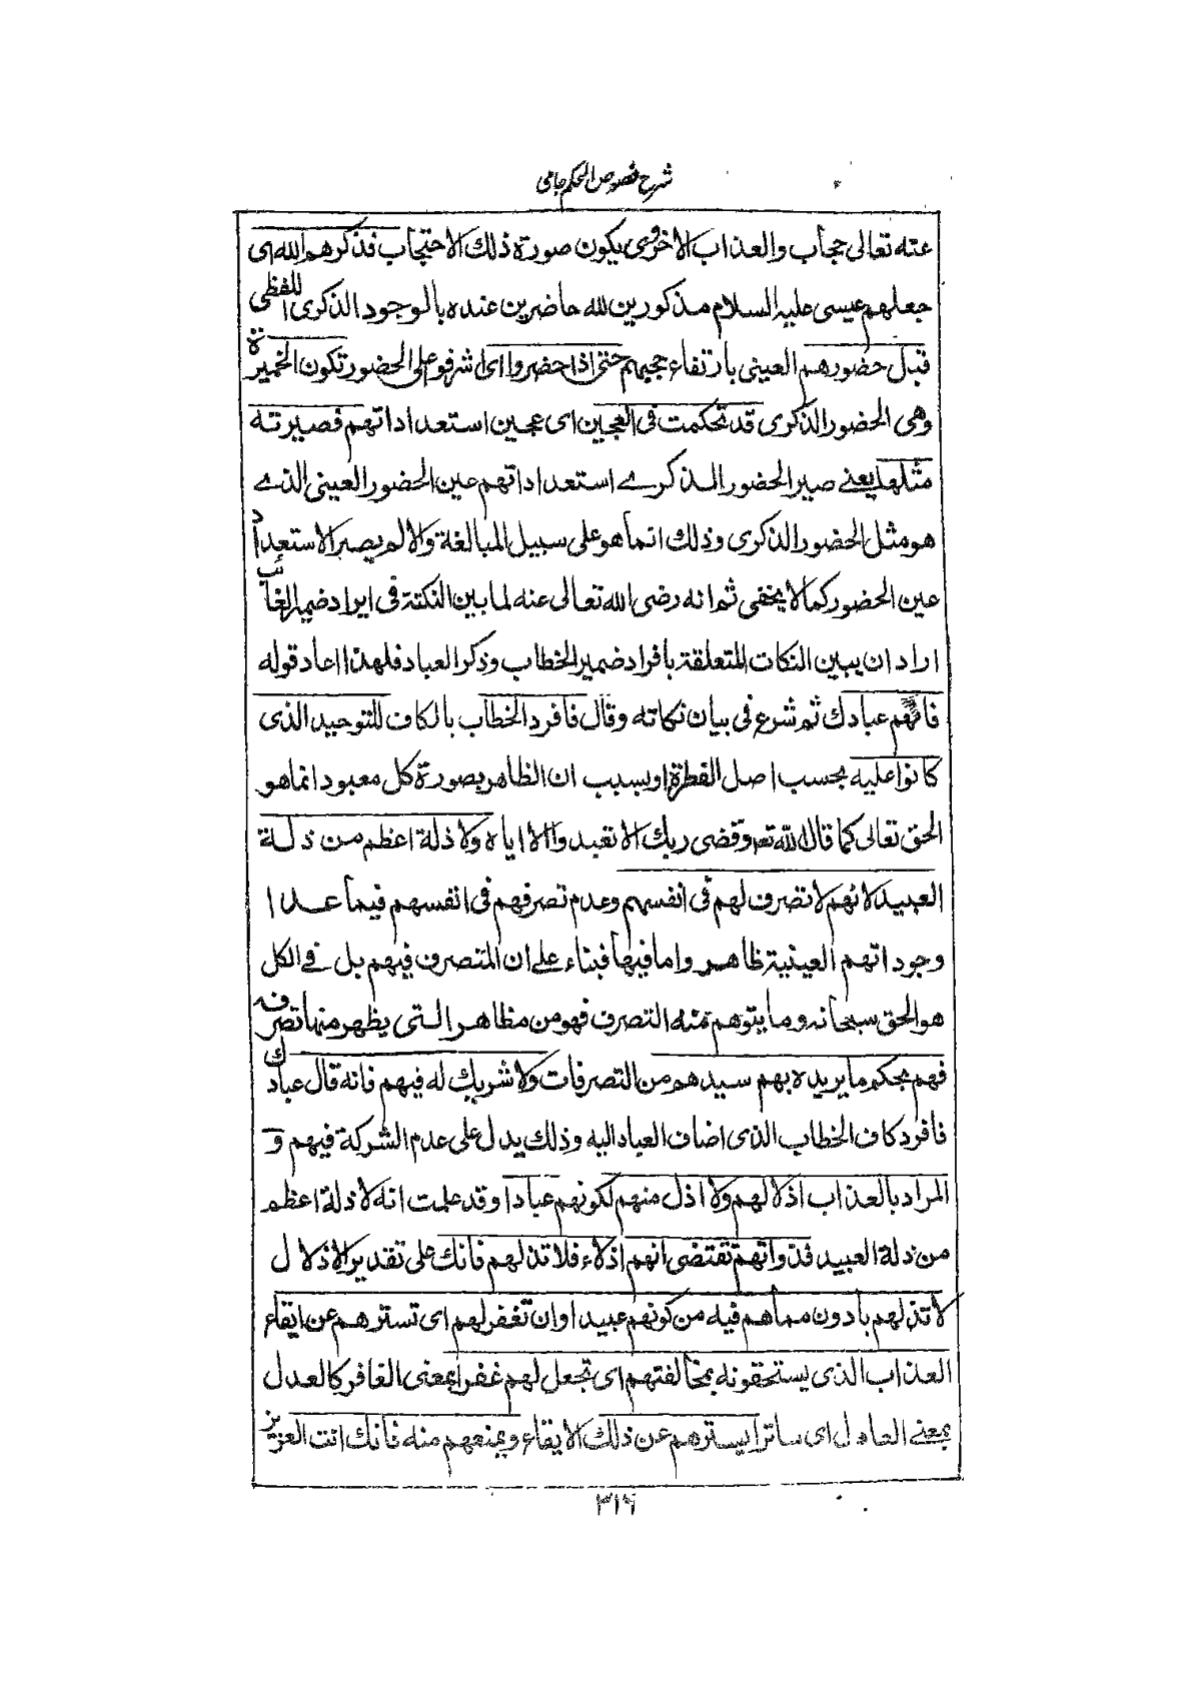 شرح فصوص الحكم جامى
عنه تعالى حجاب والعذاب الاخروى يكون صورة ذلك الاحتجاب فذكرهم الله اى
جعلهم عيسى عليه السلام مذكورين لله حاضرين عنده بالوجود الذكرى اللفظى
قبل حضورهم العينى بارتفاع حجبهم حتى اذا حضروا اى اشرفو على الحضور تكون الخميرة
وهى الحضور الذكرى قد تحكمت فى العجين اى عجين استعداداتهم فصيرته
مثلها يعنے صير الحضور الذكرے استعداداتهم عين الحضور العينى الذے
هو مثل الحضور الذكرى وذلك انما هو على سبيل المبالغة والا لم يصر الاستعداد
عين الحضور كما لا يخفى ثم انه رضى الله تعالى عنه لما بين النكتة فى ايراد ضمير الغائب
اراد ان يبين النكات المتعلقة بافراد ضمير الخطاب وذكر العباد فلهذا اعاد قوله
فانهم عبادك ثم شرع فى بيان نكاته وقال فافرد الخطاب بالكاف للتوحيد الذى
كانوا عليه بحسب اصل الفطرة او بسبب ان الظاهر بصورة كل معبود انما هو
الحق تعالى كما قال الله تعه وقضى ربك الا تعبدوا الا اياه ولا ذلة اعظم من ذلة
العبيد لانهم لا تصرف لهم فى انفسهم وعدم تصرفهم فى انفسهم فيما عدا
وجوداتهم العينية ظاهر واما فيها فبناء علے ان المتصرف فيهم بل فے الكل
هو الحق سبحانه وما يتوهم منه التصرف فهو من مظاهر التى يظهر منها تصرفه
فهم بحكم ما يريده بهم سيدهم من التصرفات ولا شريك له فيهم فانه قال عبادك
فافرد كاف الخطاب الذى اضاف العباد اليه وذلك يدل على عدم الشركة فيهم و
المراد بالعذاب اذلالهم ولا اذل منهم لكونهم عبادا وقد علمت انه لا ذلة اعظم
من ذلة العبيد فذواتهم تقتضى انهم اذلاء فلا تذلهم فانك على تقدير الاذلال
لا تذلهم بادون مما هم فيه من كونهم عبيدا وان تغفر لهم اى تسترهم عن ايقاع
العذاب الذى يستحقونه بمخالفتهم اى تجعل لهم غفرا بمعنى الغافر كالعدل
بمعنے العادل اى ساترا يسترهم عن ذلك الايقاع ويمنعهم منه فانك انت العزيز
٣١٦